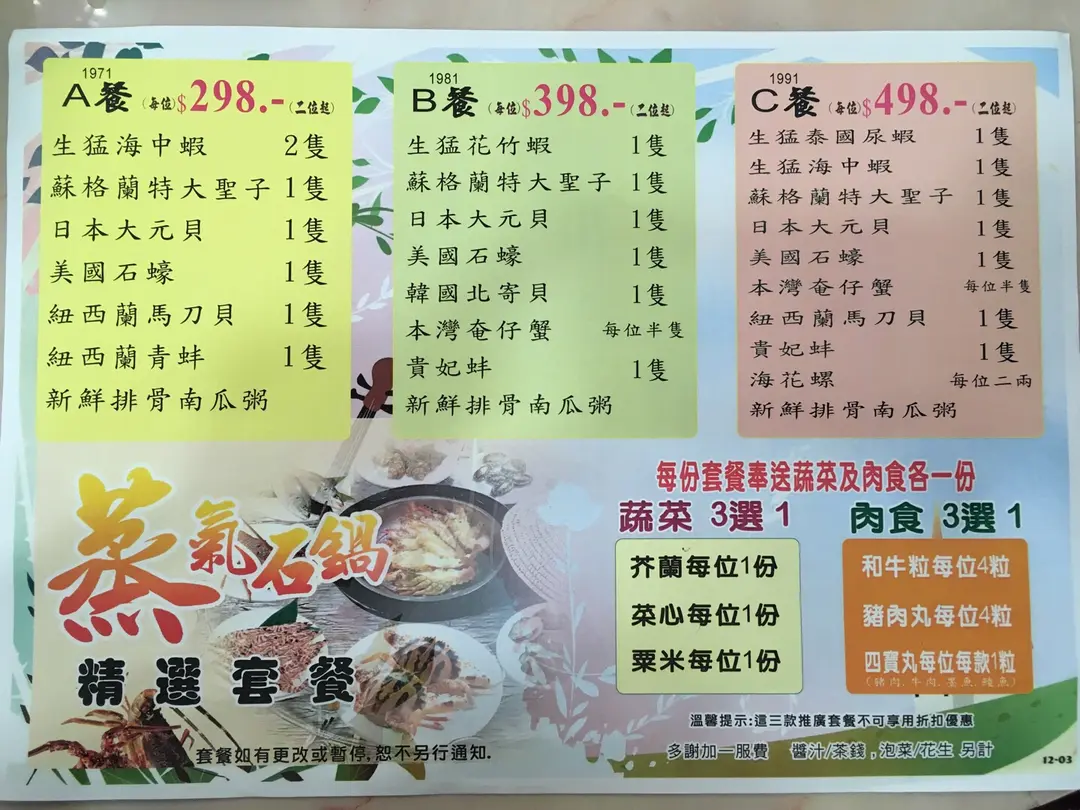 1971
A餐(每位)$298.-(二位起)
生猛海中蝦 2隻
蘇格蘭特大聖子 1隻
日本大元貝 1隻
美國石蠔 1隻
紐西蘭馬刀貝 1隻
紐西蘭青蚌 1隻
新鮮排骨南瓜粥
1981
B餐(每位)$398.-(二位起)
生猛花竹蝦 1隻
蘇格蘭特大聖子 1隻
日本大元貝 1隻
美國石蠔 1隻
韓國北寄貝 1隻
本灣奄仔蟹 每位半隻
貴妃蚌 1隻
新鮮排骨南瓜粥
1991
C餐(每位)$498.-(二位起)
生猛泰國尿蝦 1隻
生猛海中蝦 1隻
蘇格蘭特大聖子 1隻
日本大元貝 1隻
美國石蠔 1隻
本灣奄仔蟹 每位半隻
紐西蘭馬刀貝 1隻
貴妃蚌 1隻
海花螺 每位二兩
新鮮排骨南瓜粥
蒸氣石鍋
精選套餐
套餐如有更改或暫停,恕不另行通知.
每份套餐奉送蔬菜及肉食各一份
蔬菜 3選1
芥蘭每位1份
菜心每位1份
粟米每位1份
肉食 3選1
和牛粒每位4粒
豬肉丸每位4粒
四寶丸每位每款1粒
(豬肉,牛肉,墨魚,鯪魚)
溫馨提示:這三款推廣套餐不可享用折扣優惠
多謝加一服費 醬汁/茶錢,泡菜/花生 另計
12-03